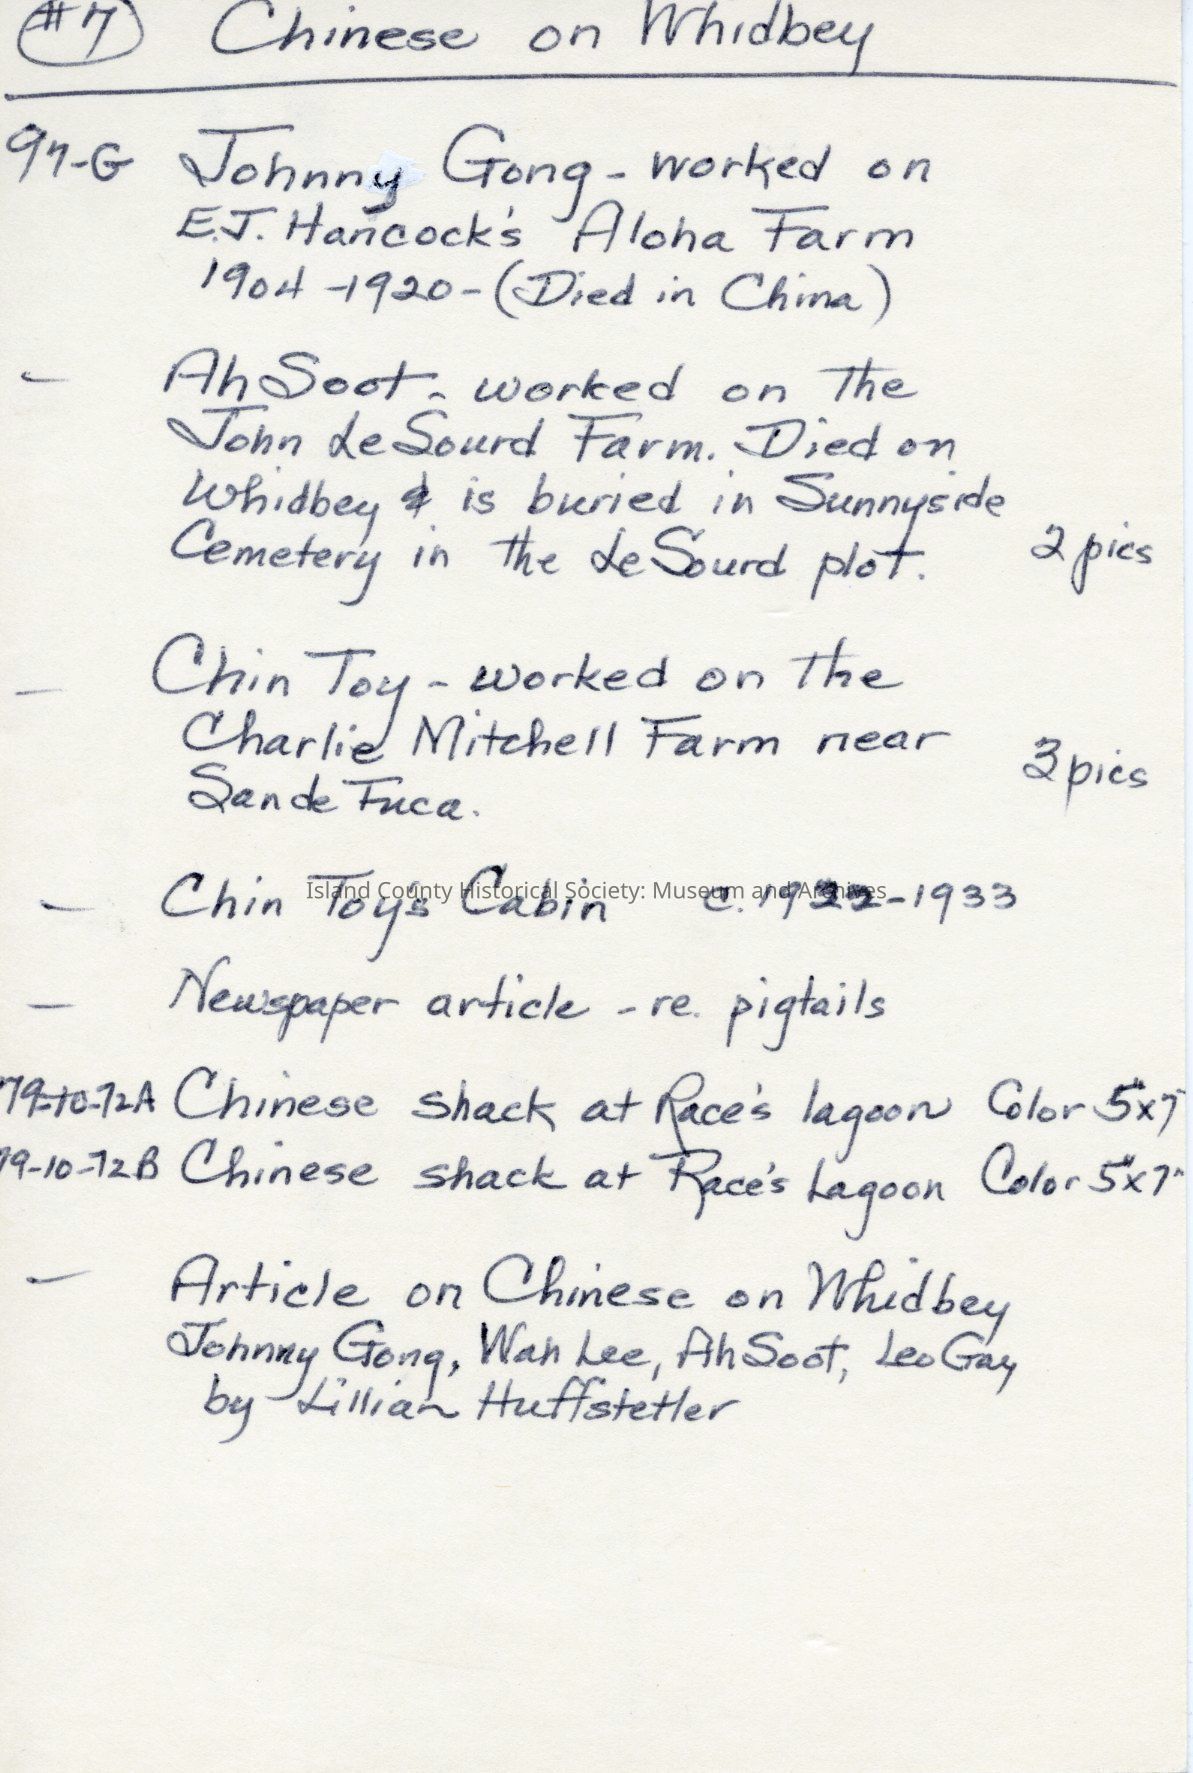 #7 Chinese on Whidbey
97-G Johnny Gong - worked on
E.J. Hancock's Aloha Farm
1904 - 1920 - (Died in China)
- Ah Soot - worked on the
John LeSourd Farm. Died on
Whidbey & is buried in Sunnyside
Cemetery in the LeSourd plot. 2 pics
- Chin Toy - worked on the
Charlie Mitchell Farm near
San de Fuca. 3 pics
- Chin Toy's Cabin c. 1922-1933
Island County Historical Society: Museum and Archives
- Newspaper article - re. pigtails
79-10-72A Chinese shack at Race's lagoon Color 5"x7"
79-10-72B Chinese shack at Race's Lagoon Color 5"x7"
- Article on Chinese on Whidbey
Johnny Gong, Wah Lee, Ah Soot, Leo Gay
by Lillian Huffstetler